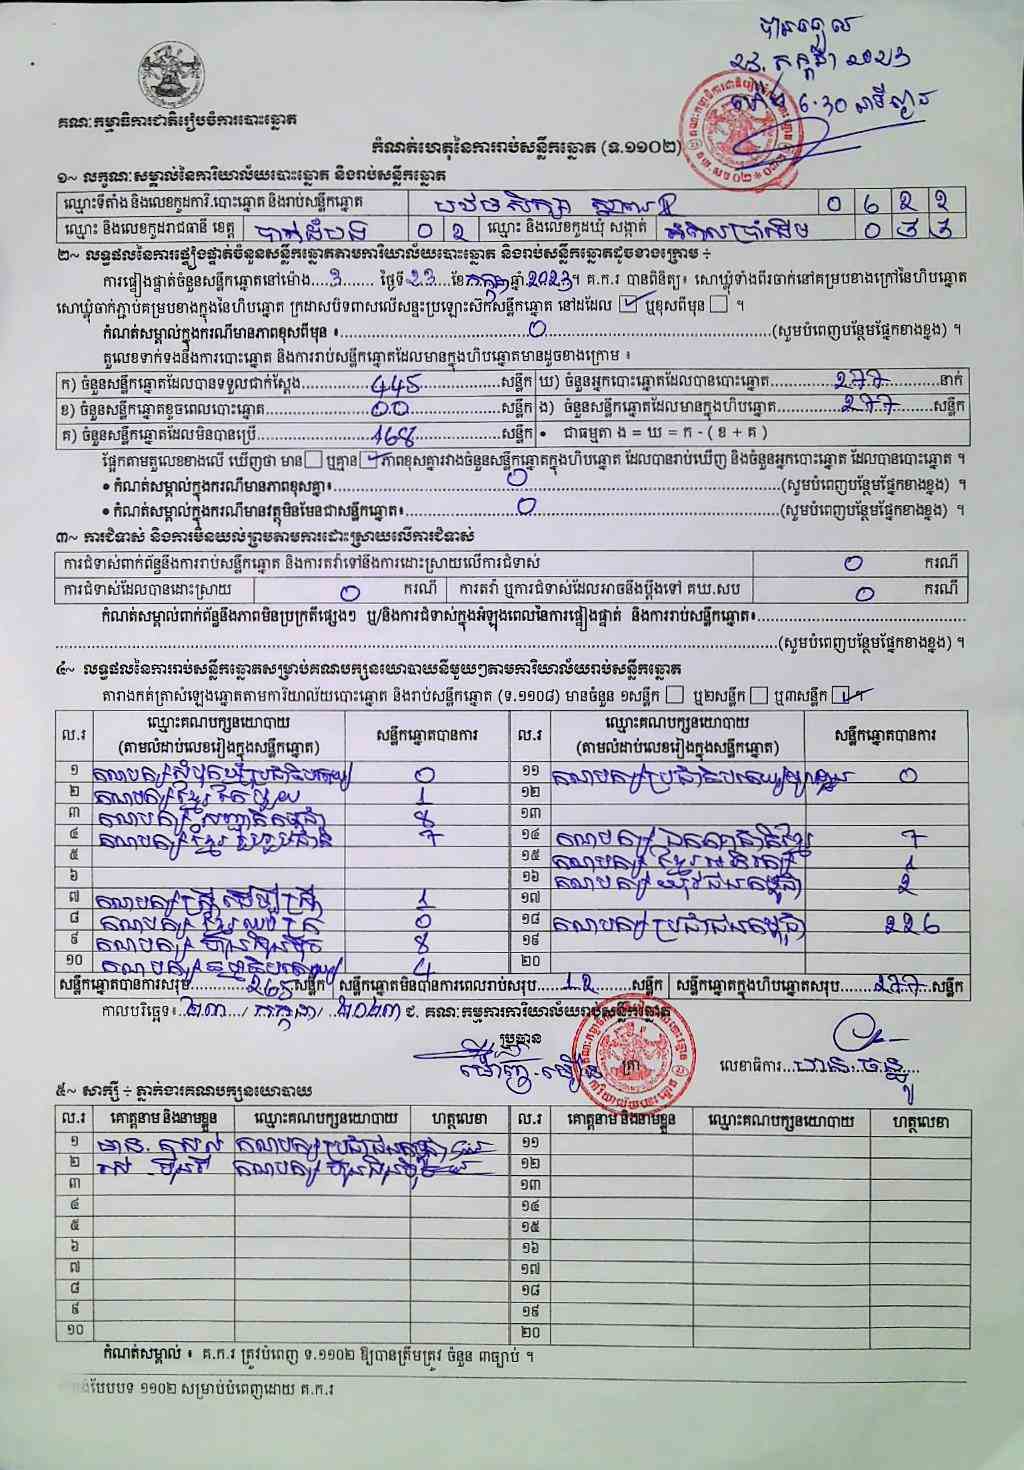 បានទទួល
23. កក្កដា 2023
ម៉ោង 6:30 នាទីល្ងាច
គណៈកម្មាធិការជាតិរៀបចំការបោះឆ្នោត
កំណត់ហេតុនៃការរាប់សន្លឹកឆ្នោត (ទ.១១០២)
១~ លក្ខណៈសម្គាល់នៃការិយាល័យបោះឆ្នោត និងរាប់សន្លឹកឆ្នោត
ឈ្មោះទីតាំង និងលេខកូដការិ.បោះឆ្នោត និងរាប់សន្លឹកឆ្នោត បឋមសិក្សា 0 6 2 2
ឈ្មោះ និងលេខកូដរាជធានី ខេត្ត បាត់ដំបង 0 2 ឈ្មោះ និងលេខកូដឃុំ សង្កាត់ អំពិលប្រាំដើម 0 3 3
២~ លទ្ធផលនៃការផ្ទៀងផ្ទាត់ចំនួនសន្លឹកឆ្នោតតាមការិយាល័យបោះឆ្នោត និងរាប់សន្លឹកឆ្នោតដូចខាងក្រោម ÷
ការផ្ទៀងផ្ទាត់ចំនួនសន្លឹកឆ្នោតនៅម៉ោង....3....... ថ្ងៃទី.23...ខែ កក្កដា ឆ្នាំ.2023។ គ.ក.រ បានពិនិត្យ៖ សោឃ្លុំទាំងពីរចាក់នៅគម្របខាងក្រៅនៃហិបឆ្នោត
សោឃ្លុំចាក់ភ្ជាប់គម្របខាងក្នុងនៃហិបឆ្នោត ក្រដាសបិទពាសលើសន្ទះប្រឡោះស៊កសន្លឹកឆ្នោត នៅដដែល ☑ ឬខុសពីមុន ☐ ។
កំណត់សម្គាល់ក្នុងករណីមានភាពខុសពីមុន ៖ 0 (សូមបំពេញបន្ថែមផ្នែកខាងខ្នង) ។
តួលេខទាក់ទងនឹងការបោះឆ្នោត និងការរាប់សន្លឹកឆ្នោតដែលមានក្នុងហិបឆ្នោតមានដូចខាងក្រោម ៖
ក) ចំនួនសន្លឹកឆ្នោតដែលបានទទួលជាក់ស្ដែង 445 សន្លឹក ឃ) ចំនួនអ្នកបោះឆ្នោតដែលបានបោះឆ្នោត 277 នាក់
ខ) ចំនួនសន្លឹកឆ្នោតខូចពេលបោះឆ្នោត 00 សន្លឹក ង) ចំនួនសន្លឹកឆ្នោតដែលមានក្នុងហិបឆ្នោត 277 សន្លឹក
គ) ចំនួនសន្លឹកឆ្នោតដែលមិនបានប្រើ 168 សន្លឹក • ជាធម្មតា ង = ឃ = ក - ( ខ + គ )
ផ្អែកតាមតួលេខខាងលើ ឃើញថា មាន ☐ ឬគ្មាន ☑ ភាពខុសគ្នារវាងចំនួនសន្លឹកឆ្នោតក្នុងហិបឆ្នោត ដែលបានរាប់ឃើញ និងចំនួនអ្នកបោះឆ្នោត ដែលបានបោះឆ្នោត ។
• កំណត់សម្គាល់ក្នុងករណីមានភាពខុសគ្នា៖ 0 (សូមបំពេញបន្ថែមផ្នែកខាងខ្នង) ។
• កំណត់សម្គាល់ក្នុងករណីមានវត្ថុមិនមែនជាសន្លឹកឆ្នោត៖ 0 (សូមបំពេញបន្ថែមផ្នែកខាងខ្នង) ។
៣~ ការជំទាស់ និងការមិនយល់ព្រមតាមការដោះស្រាយលើការជំទាស់
ការជំទាស់ពាក់ព័ន្ធនឹងការរាប់សន្លឹកឆ្នោត និងការតវ៉ាទៅនឹងការដោះស្រាយលើការជំទាស់ 0 ករណី
ការជំទាស់ដែលបានដោះស្រាយ 0 ករណី ការតវ៉ា ឬការជំទាស់ដែលអាចនឹងប្ដឹងទៅ គឃ.សប 0 ករណី
កំណត់សម្គាល់ពាក់ព័ន្ធនឹងភាពមិនប្រក្រតីផ្សេងៗ ឬ/និងការជំទាស់ក្នុងអំឡុងពេលនៃការផ្ទៀងផ្ទាត់ និងការរាប់សន្លឹកឆ្នោត៖
(សូមបំពេញបន្ថែមផ្នែកខាងខ្នង) ។
៤~ លទ្ធផលនៃការរាប់សន្លឹកឆ្នោតសម្រាប់គណបក្សនយោបាយនីមួយៗតាមការិយាល័យរាប់សន្លឹកឆ្នោត
តារាងកត់ត្រាសំឡេងឆ្នោតតាមការិយាល័យបោះឆ្នោត និងរាប់សន្លឹកឆ្នោត (ទ.១១០៨) មានចំនួន ១សន្លឹក ☐ ឬ២សន្លឹក ☐ ឬ៣សន្លឹក ☑
ល.រ ឈ្មោះគណបក្សនយោបាយ (តាមលំដាប់លេខរៀងក្នុងសន្លឹកឆ្នោត) សន្លឹកឆ្នោតបានការ ល.រ ឈ្មោះគណបក្សនយោបាយ (តាមលំដាប់លេខរៀងក្នុងសន្លឹកឆ្នោត) សន្លឹកឆ្នោតបានការ
១ គណបក្សសំបុកឃ្មុំប្រជាធិបតេយ្យ 0 ១១ គណបក្សប្រជាធិបតេយ្យមូលដ្ឋាន 0
២ គណបក្សខ្មែរតែមួយ 1 ១២
៣ គណបក្សសញ្ជាតិកម្ពុជា 8 ១៣
៤ គណបក្សខ្មែររួបរួមជាតិ 7 ១៤ គណបក្សឯកភាពជាតិខ្មែរ 7
៥ ១៥ គណបក្សខ្មែរអភិរក្ស 1
៦ ១៦ គណបក្សយុវជនកម្ពុជា 2
៧ គណបក្សស្ត្រីដើម្បីស្ត្រី 1 ១៧
៨ គណបក្សខ្មែរឈប់ក្រ 0 ១៨ គណបក្សប្រជាជនកម្ពុជា 226
៩ គណបក្សហ៊្វុនស៊ិនប៉ិច 8 ១៩
១០ គណបក្សធម្មាធិបតេយ្យ 4 ២០
សន្លឹកឆ្នោតបានការសរុប 265 សន្លឹក សន្លឹកឆ្នោតមិនបានការពេលរាប់សរុប 12 សន្លឹក សន្លឹកឆ្នោតក្នុងហិបឆ្នោតសរុប 277 សន្លឹក
កាលបរិច្ឆេទ៖ ២៣ / កក្កដា / ២០២៣ ជ. គណៈកម្មការការិយាល័យរាប់សន្លឹកឆ្នោត
ប្រធាន
ត្រា លេខាធិការ
៥~ សាក្សី ÷ ភ្នាក់ងារគណបក្សនយោបាយ
ល.រ គោត្តនាម និងនាមខ្លួន ឈ្មោះគណបក្សនយោបាយ ហត្ថលេខា ល.រ គោត្តនាម និងនាមខ្លួន ឈ្មោះគណបក្សនយោបាយ ហត្ថលេខា
១ គណបក្សប្រជាជនកម្ពុជា ១១
២ គណបក្សហ៊្វុនស៊ិនប៉ិច ១២
៣ ១៣
៤ ១៤
៥ ១៥
៦ ១៦
៧ ១៧
៨ ១៨
៩ ១៩
១០ ២០
កំណត់សម្គាល់ ៖ គ.ក.រ ត្រូវបំពេញ ទ.១១០២ ឱ្យបានត្រឹមត្រូវ ចំនួន ៣ច្បាប់ ។
បែបបទ ១១០២ សម្រាប់បំពេញដោយ គ.ក.រ